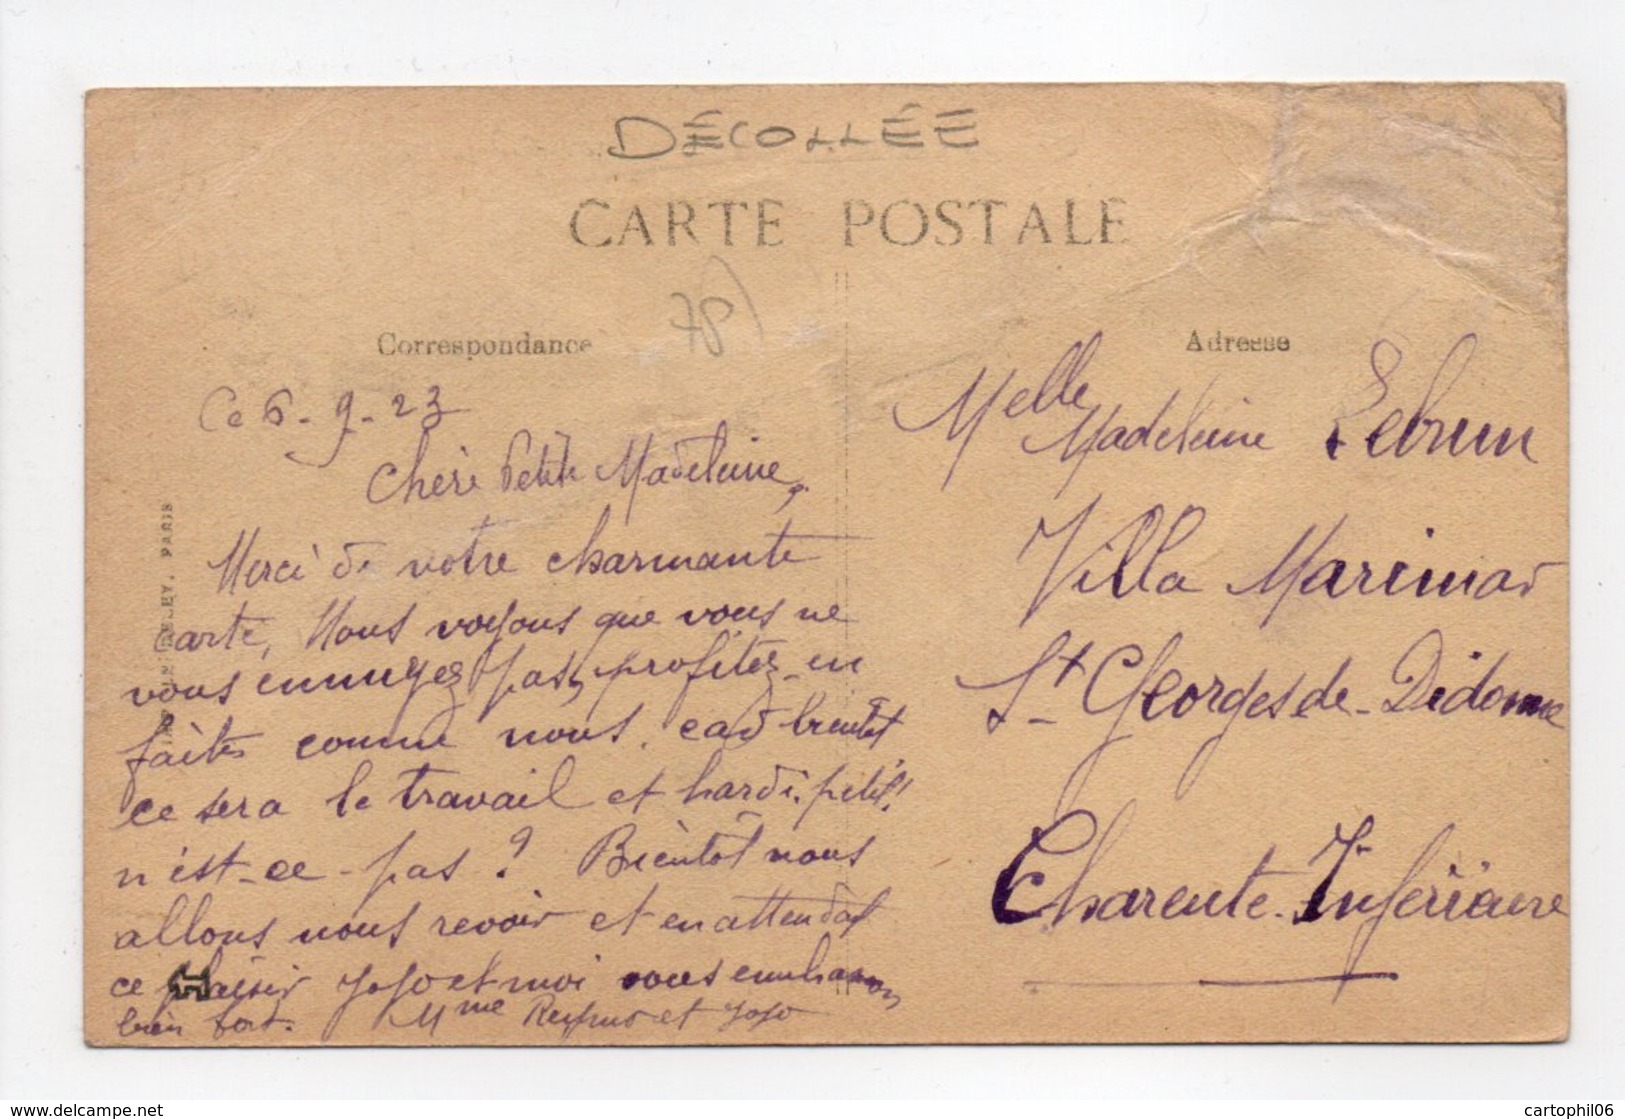 DÉCOLLÉE
CARTE POSTALE
78
Correspondance
Ce 6-9-23
Chère Petite Madeleine,
Merci de votre charmante
carte, Nous voyons que vous ne
vous ennuyez pas, profitez-en
faites comme nous. car bientôt
ce sera le travail et hardi petit!
n'est-ce-pas? Bientôt nous
allons nous revoir et en attendant
ce plaisir Jojo et moi vous embrassons
bien fort. Mme et Jojo
PARIS
Adresse
Melle Madeleine Lebrun
Villa Marimar
St Georges de-Didonne
Charente-Inférieure
delcampe.net
cartophil06